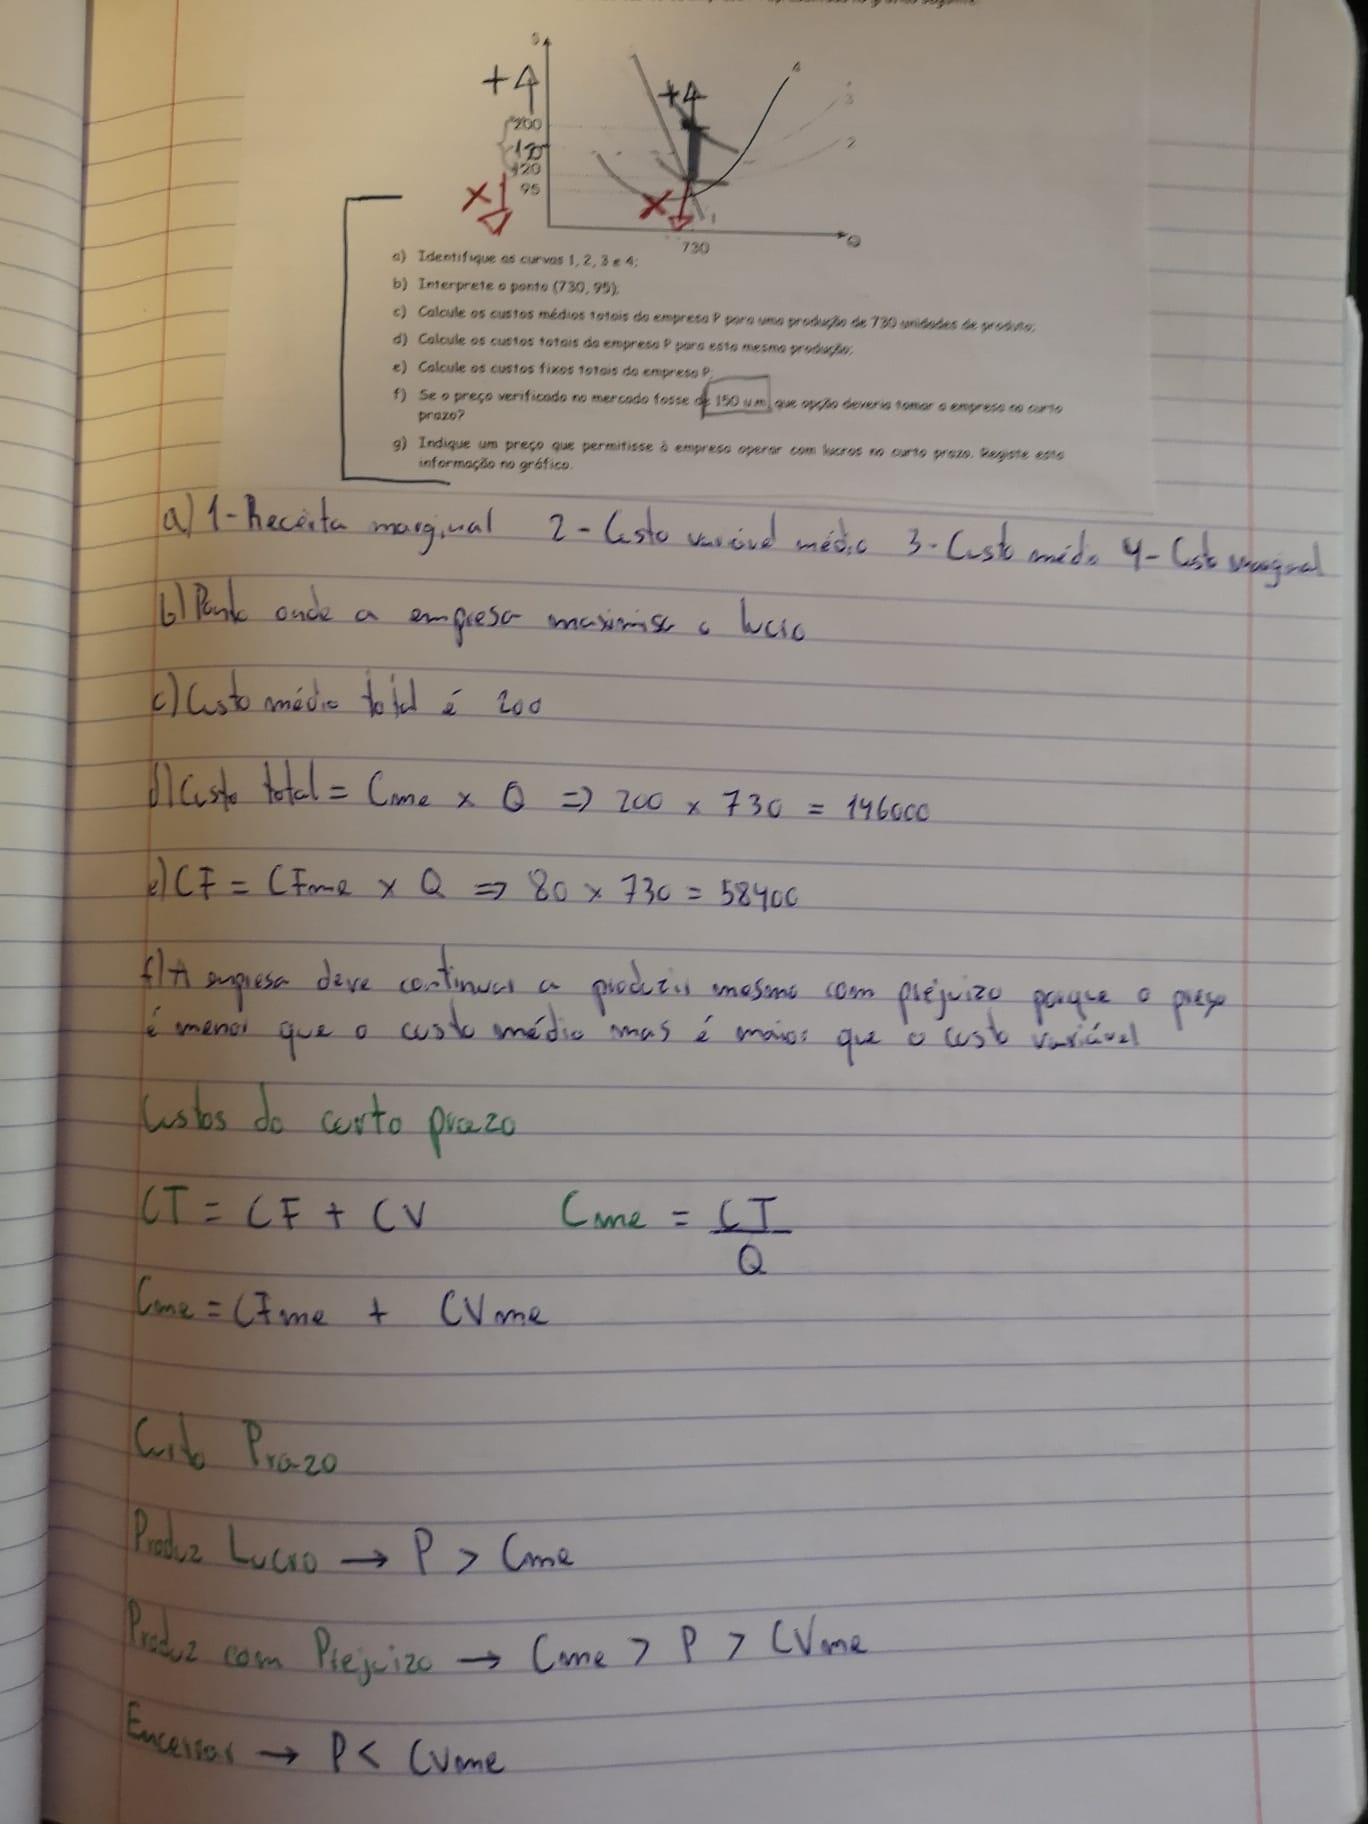 $
+4
+4
4
3
200
150
2
120
95
X
X
1
730
Q
a) Identifique as curvas 1, 2, 3 e 4;
b) Interprete o ponto (730, 95);
c) Calcule os custos médios totais da empresa P para uma produção de 730 unidades de produto;
d) Calcule os custos totais da empresa P para esta mesma produção;
e) Calcule os custos fixos totais da empresa P.
f) Se o preço verificado no mercado fosse de 150 u.m. que opção deveria tomar a empresa no curto
prazo?
g) Indique um preço que permitisse à empresa operar com lucros no curto prazo. Registe esta
informação no gráfico.
a) 1-Receita marginal 2- Custo variável médio 3-Custo médio 4-Custo marginal
b) Ponto onde a empresa maximiza o lucro
c) Custo médio total é 200
d) Custo total = Cme x Q => 200 x 730 = 146000
e) CF = CFme x Q => 80 x 730 = 58400
f) A empresa deve continuar a produzir mesmo com prejuizo porque o preço
é menor que o custo médio mas é maior que o custo variável
Custos do curto prazo
CT = CF + CV Cme = CT
Q
Cme = CFme + CVme
Curto Prazo
Produz Lucro → P > Cme
Produz com Prejuizo → Cme > P > CVme
Encerrar → P < CVme